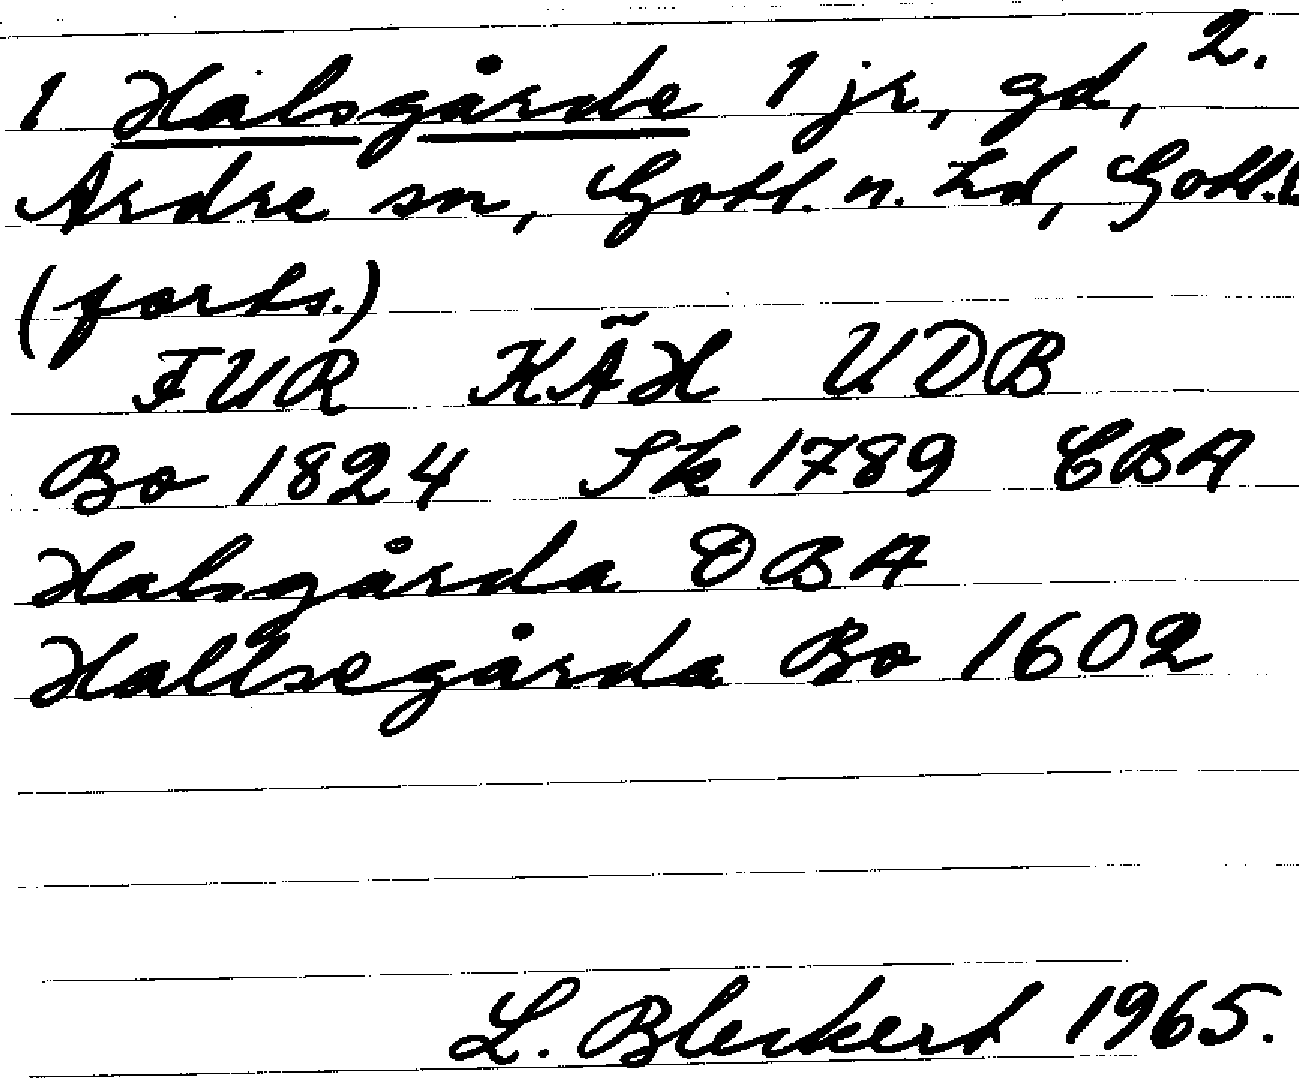 2.
1 Halsgårde 1 jr, gd,
Ardre sn, Gotl. n. hd, Gotl. l
(forts.)
FUR KÄH UDB
Bo 1824 Sk 1789 CBA
Halsgårda ÖBA
Hallsegårda Bo 1602
L. Bleckert 1965.